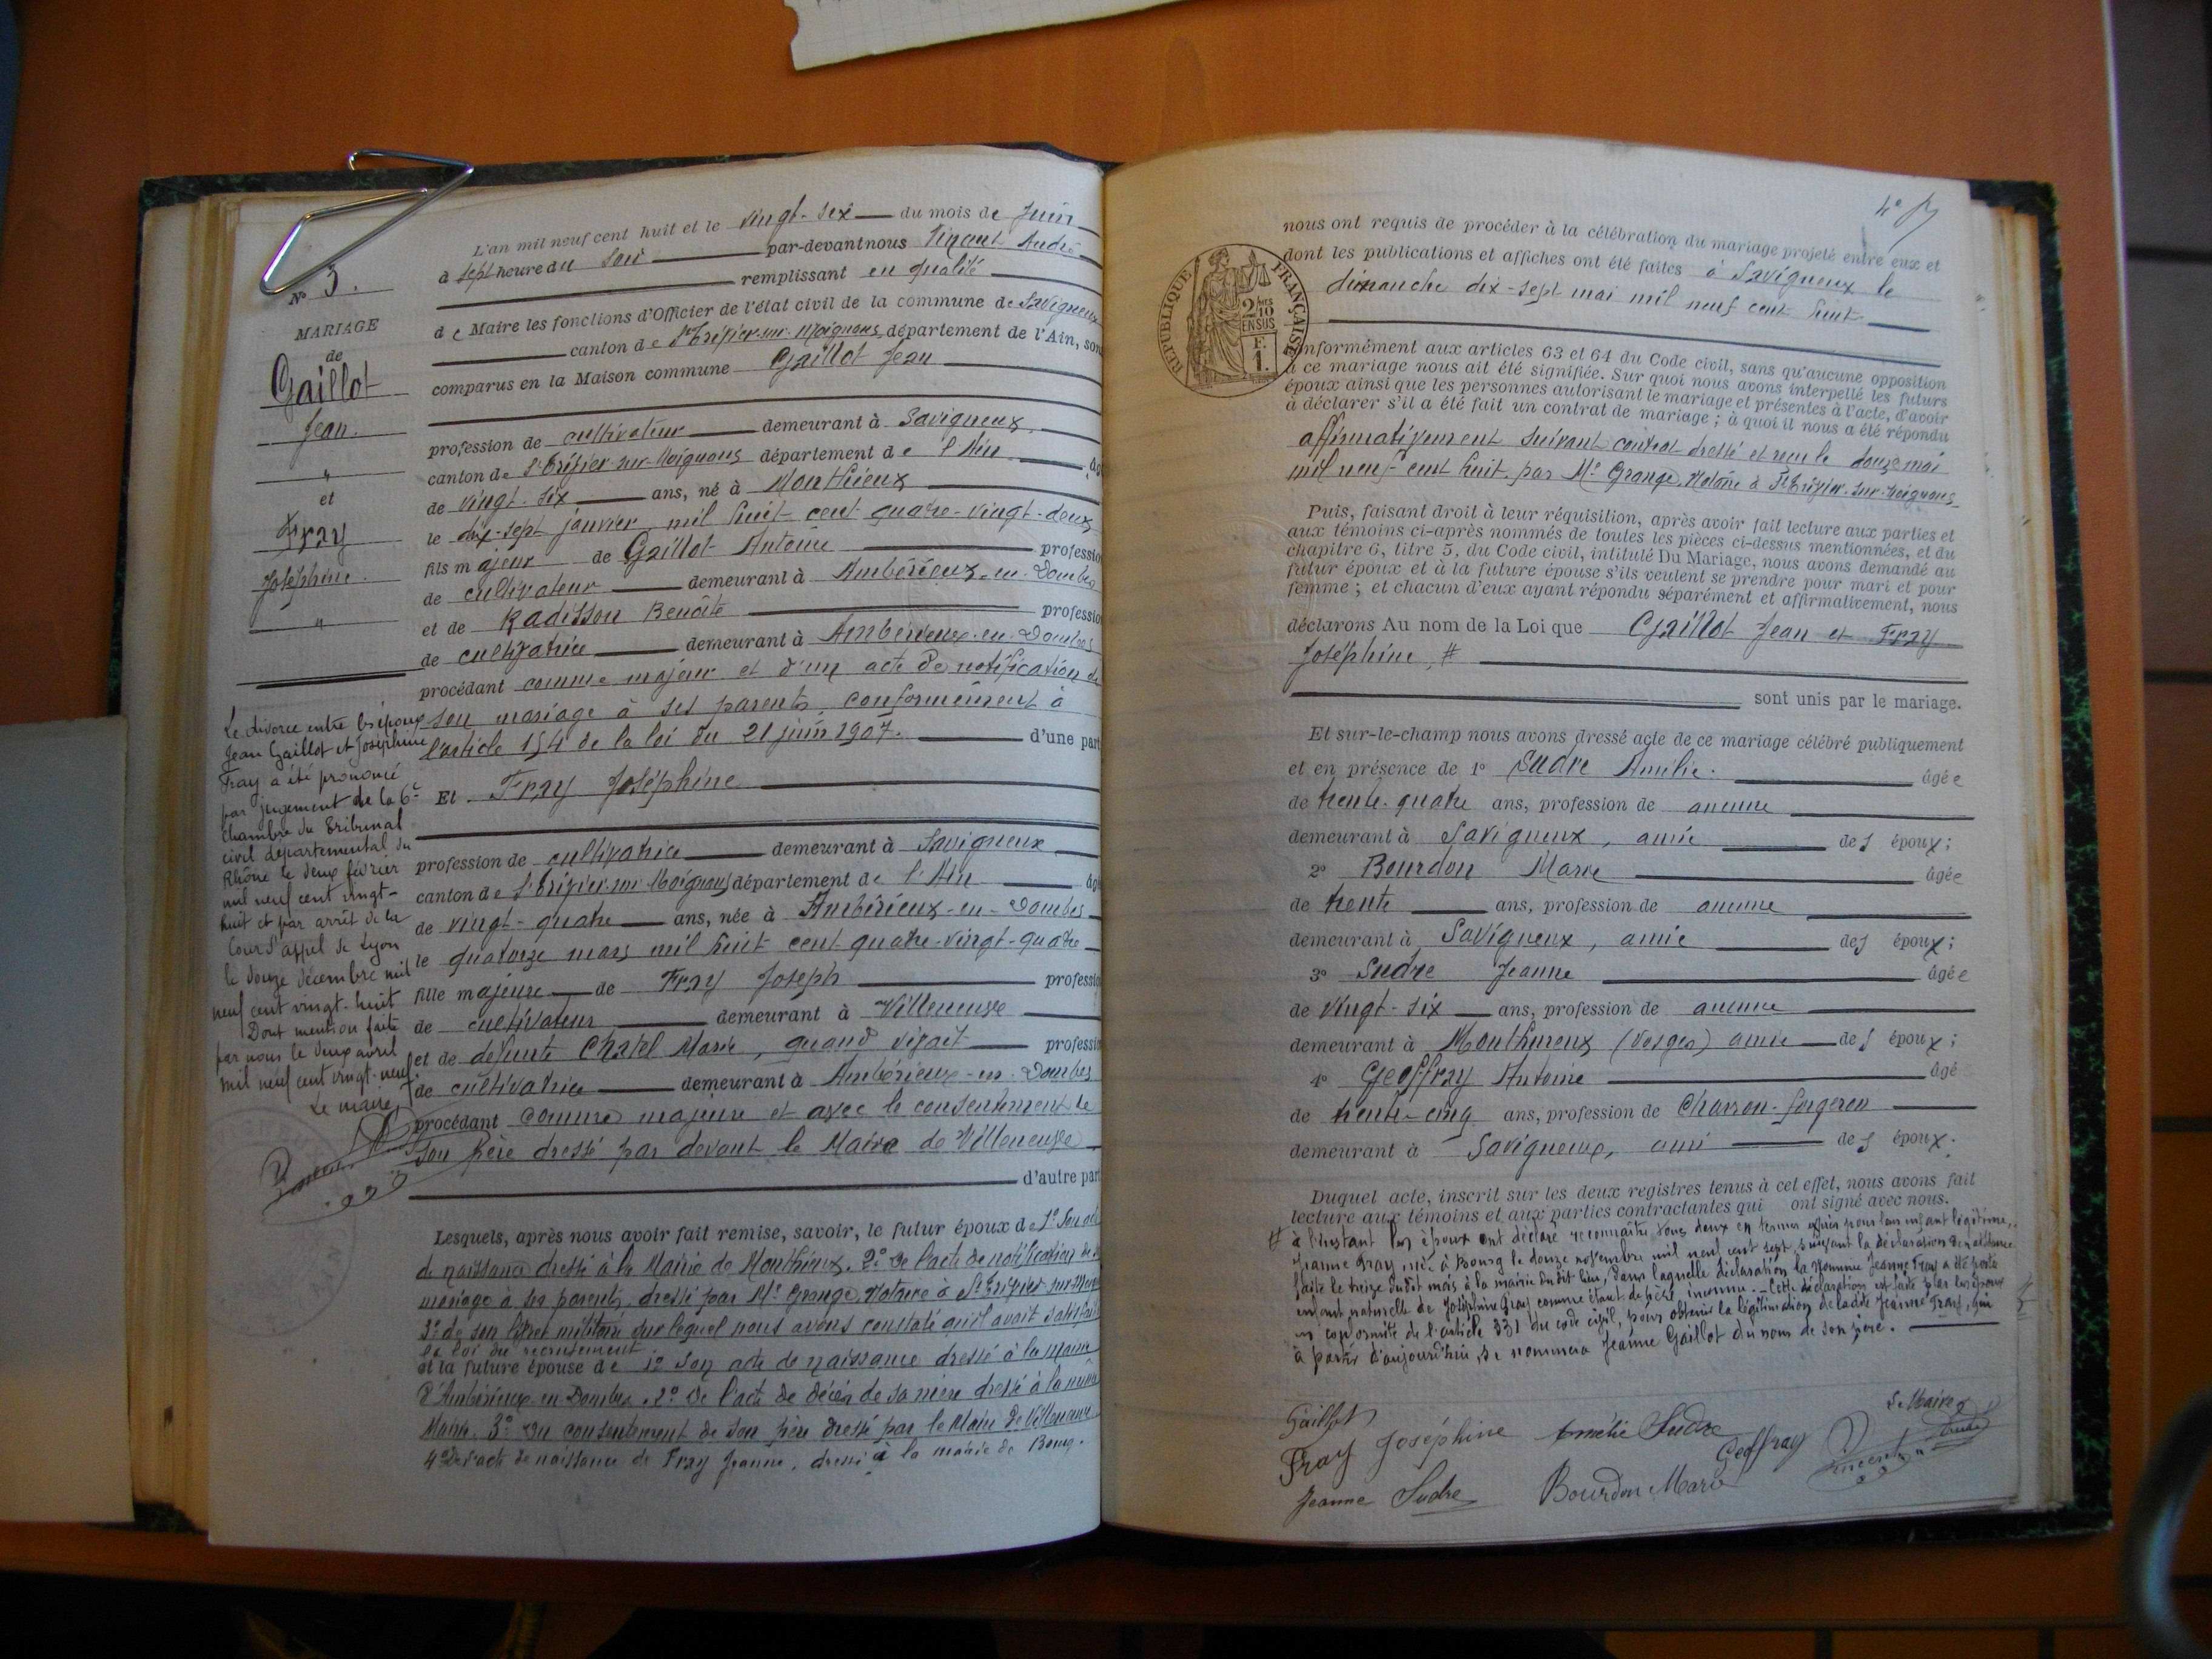 L'an mil neuf cent huit et le vingt-six du mois de Juin
à sept heure du soir par-devant nous André
remplissant en qualité
de Maire les fonctions d'Officier de l'état civil de la commune de Savigneux
canton de St Trivier-sur-Moignans, département de l'Ain, son
comparus en la Maison commune Gaillot Jean
profession de cultivateur demeurant à Savigneux,
canton de St Trivier-sur-Moignans département de l'Ain âg
de vingt-six ans, né à Monthieux
le dix-sept janvier mil huit cent quatre-vingt-deux
fils majeur de Gaillot Antoine professio
de cultivateur demeurant à Ambérieux-en-Dombes
et de Radisson Benoîte professio
de cultivatrice demeurant à Ambérieux-en-Dombes
procédant comme majeur et d'un acte de notification de
son mariage à ses parents, conformément à
l'article 154 de la loi du 21 juin 1907. d'une part
Et Fray Joséphine
profession de cultivatrice demeurant à Savigneux
canton de St Trivier-sur-Moignans département de l'Ain âgé
de vingt-quatre ans, née à Ambérieux-en-Dombes
le quatorze mars mil huit cent quatre-vingt-quatre
fille majeure de Fray Joseph professio
de cultivateur demeurant à Villeneuve
et de défunte Chatel Marie, quand vivait professio
de cultivatrice demeurant à Ambérieux-en-Dombes
procédant comme majeure et avec le consentement de
son père dressé par devant le Maire de Villeneuve
d'autre part
Lesquels, après nous avoir fait remise, savoir, le futur époux de 1° son acte
de naissance dressé à la Mairie de Monthieux. 2° de l'acte de notification de
mariage à ses parents, dressé par Me Grange, Notaire à St Trivier-sur-Moig
3° de son livret militaire sur lequel nous avons constaté qu'il avait satisfait
la loi du recrutement
et la future épouse de 1° son acte de naissance dressé à la mairie
d'Ambérieux-en-Dombes. 2° de l'acte de décès de sa mère dressé à la même
Mairie. 3° du consentement de son père dressé par le Maire de Villeneuve.
4° de l'acte de naissance de Fray Jeanne, dressé à la mairie de Bourg.
N° 3.
MARIAGE
de
Gaillot
Jean.
"
et
Fray
Joséphine.
"
Le divorce entre les époux
Jean Gaillot et Joséphine
Fray a été prononcé
par jugement de la 6e
Chambre du Tribunal
civil départemental du
Rhône le deux février
mil neuf cent vingt-
huit et par arrêt de la
Cour d'appel de Lyon
le douze décembre mil
neuf cent vingt-huit
Dont mention faite
par nous le deux avril
mil neuf cent vingt-neuf.
Le maire,
nous ont requis de procéder à la célébration du mariage projeté entre eux et
dont les publications et affiches ont été faites à Savigneux le
dimanche dix-sept mai mil neuf cent huit
RÉPUBLIQUE FRANÇAISE
2/10 EN SUS
F. 1.
conformément aux articles 63 et 64 du Code civil, sans qu'aucune opposition
à ce mariage nous ait été signifiée. Sur quoi nous avons interpellé les futurs
époux ainsi que les personnes autorisant le mariage et présentes à l'acte, d'avoir
à déclarer s'il a été fait un contrat de mariage ; à quoi il nous a été répondu
affirmativement suivant contrat dressé et reçu le douze mai
mil neuf cent huit par Me Grange, Notaire à St Trivier-sur-Moignans
Puis, faisant droit à leur réquisition, après avoir fait lecture aux parties et
aux témoins ci-après nommés de toutes les pièces ci-dessus mentionnées, et du
chapitre 6, titre 5, du Code civil, intitulé Du Mariage, nous avons demandé au
futur époux et à la future épouse s'ils veulent se prendre pour mari et pour
femme ; et chacun d'eux ayant répondu séparément et affirmativement, nous
déclarons Au nom de la Loi que Gaillot Jean et Fray
Joséphine, #
sont unis par le mariage.
Et sur-le-champ nous avons dressé acte de ce mariage célébré publiquement
et en présence de 1° Sudre Amélie. âgée
de trente-quatre ans, profession de aucune
demeurant à Savigneux, amie des époux ;
2° Bourdon Marie âgée
de trente ans, profession de aucune
demeurant à Savigneux, amie des époux ;
3° Sudre Jeanne âgée
de vingt-six ans, profession de aucune
demeurant à Monthureux (Vosges) amie des époux ;
4° Geoffray Antoine âgé
de trente-cinq ans, profession de Charron-forgeron
demeurant à Savigneux, ami des époux.
Duquel acte, inscrit sur les deux registres tenus à cet effet, nous avons fait
lecture aux témoins et aux parties contractantes qui ont signé avec nous.
# à l'instant les époux ont déclaré reconnaître tous deux en termes exprès pour leur enfant légitime,
Jeanne Fray, née à Bourg le douze novembre mil neuf cent sept, suivant la déclaration de naissance
faite le treize dudit mois à la mairie dudit lieu, dans laquelle déclaration la nommée Jeanne Fray a été portée
enfant naturelle de Joséphine Fray comme étant de père inconnu. - Cette déclaration est faite par les époux
en conformité de l'article 331 du code civil, pour obtenir la légitimation de ladite Jeanne Fray, qui
à partir d'aujourd'hui, se nommera Jeanne Gaillot du nom de son père.
Gaillot
Fray Joséphine Amélie Sudre
Geoffray
Le Maire
Jeanne Sudre Bourdon Marie